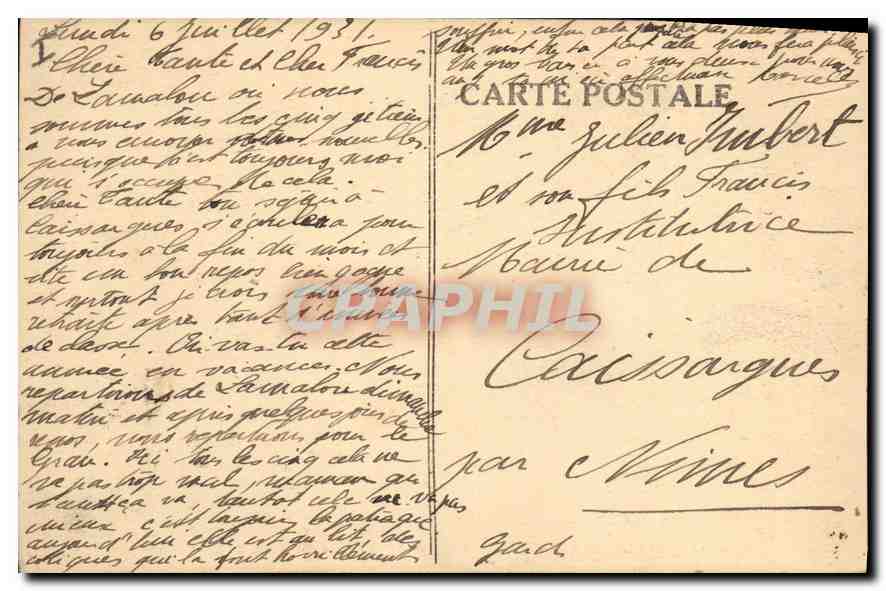 Lundi 6 Juillet 1931.
Chère Tante et Cher Francis
De Lamalou où nous
sommes tous les cinq je viens
à vous envoyer nouvelles
puisque c'est toujours moi
qui s'occupe de cela.
Chère Tante ton séjour à
Caissargues pour
toujours à la fin du mois et
un bon repos bien gagné
et surtout je crois une bonne
retraite après tant d'années
de classe. Où vas-tu cette
année en vacances. Nous
repartirons de Lamalou dimanche
matin et après quelques jours de
repos, nous repartirons pour le
Grau. Ici tous les cinq cela ne
va pas trop mal, maman
ça va, tantôt cela ne va pas
mieux c'est toujours
aujourd'hui elle est au lit, des
coliques qui la font horriblement
souffrir, enfin cela pas
Un mot de ta part cela nous fera plaisir
Un gros baiser à vous deux
CARTE POSTALE
Mme Julien Imbert
et son fils Francis
Institutrice
Mairie de
Caissargues
par Nimes
Gard
CPAPHIL